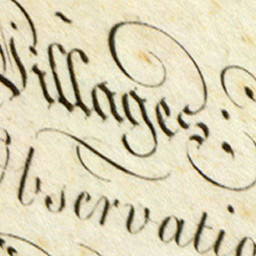 Villages:
Observatio